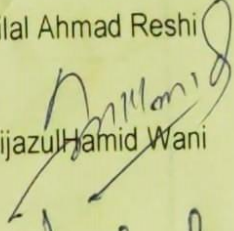 ilal Ahmad Reshi
ijazulHamid Wani